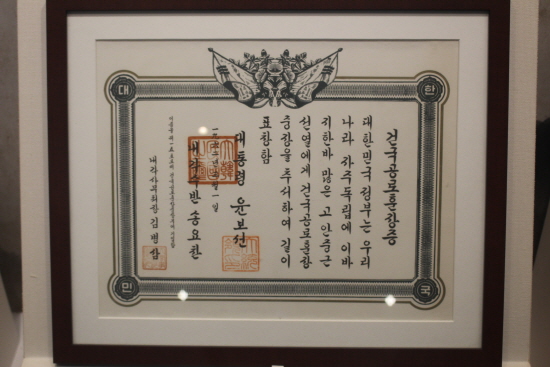 대한민국
건국공로훈장증
대한민국 정부는 우리
나라 자주독립에 이바
지한바 많은 고 안중근
선열에게 건국공로훈장
중장을 추서하여 길이
표창함
일 일
대통령 윤보선
내각수반 송요찬
내각사무처장 김병삼